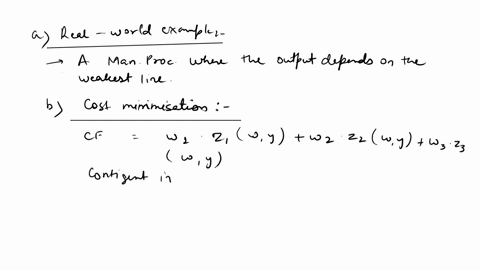 a) Real-world example:-
→ A Man. Proc. where the output depends on the
weakest line.
b) Cost minimisation :-
CF = w1 · z1 (w,y) + w2 · z2 (w,y) + w3 · z3
(w,y)
Contigent in